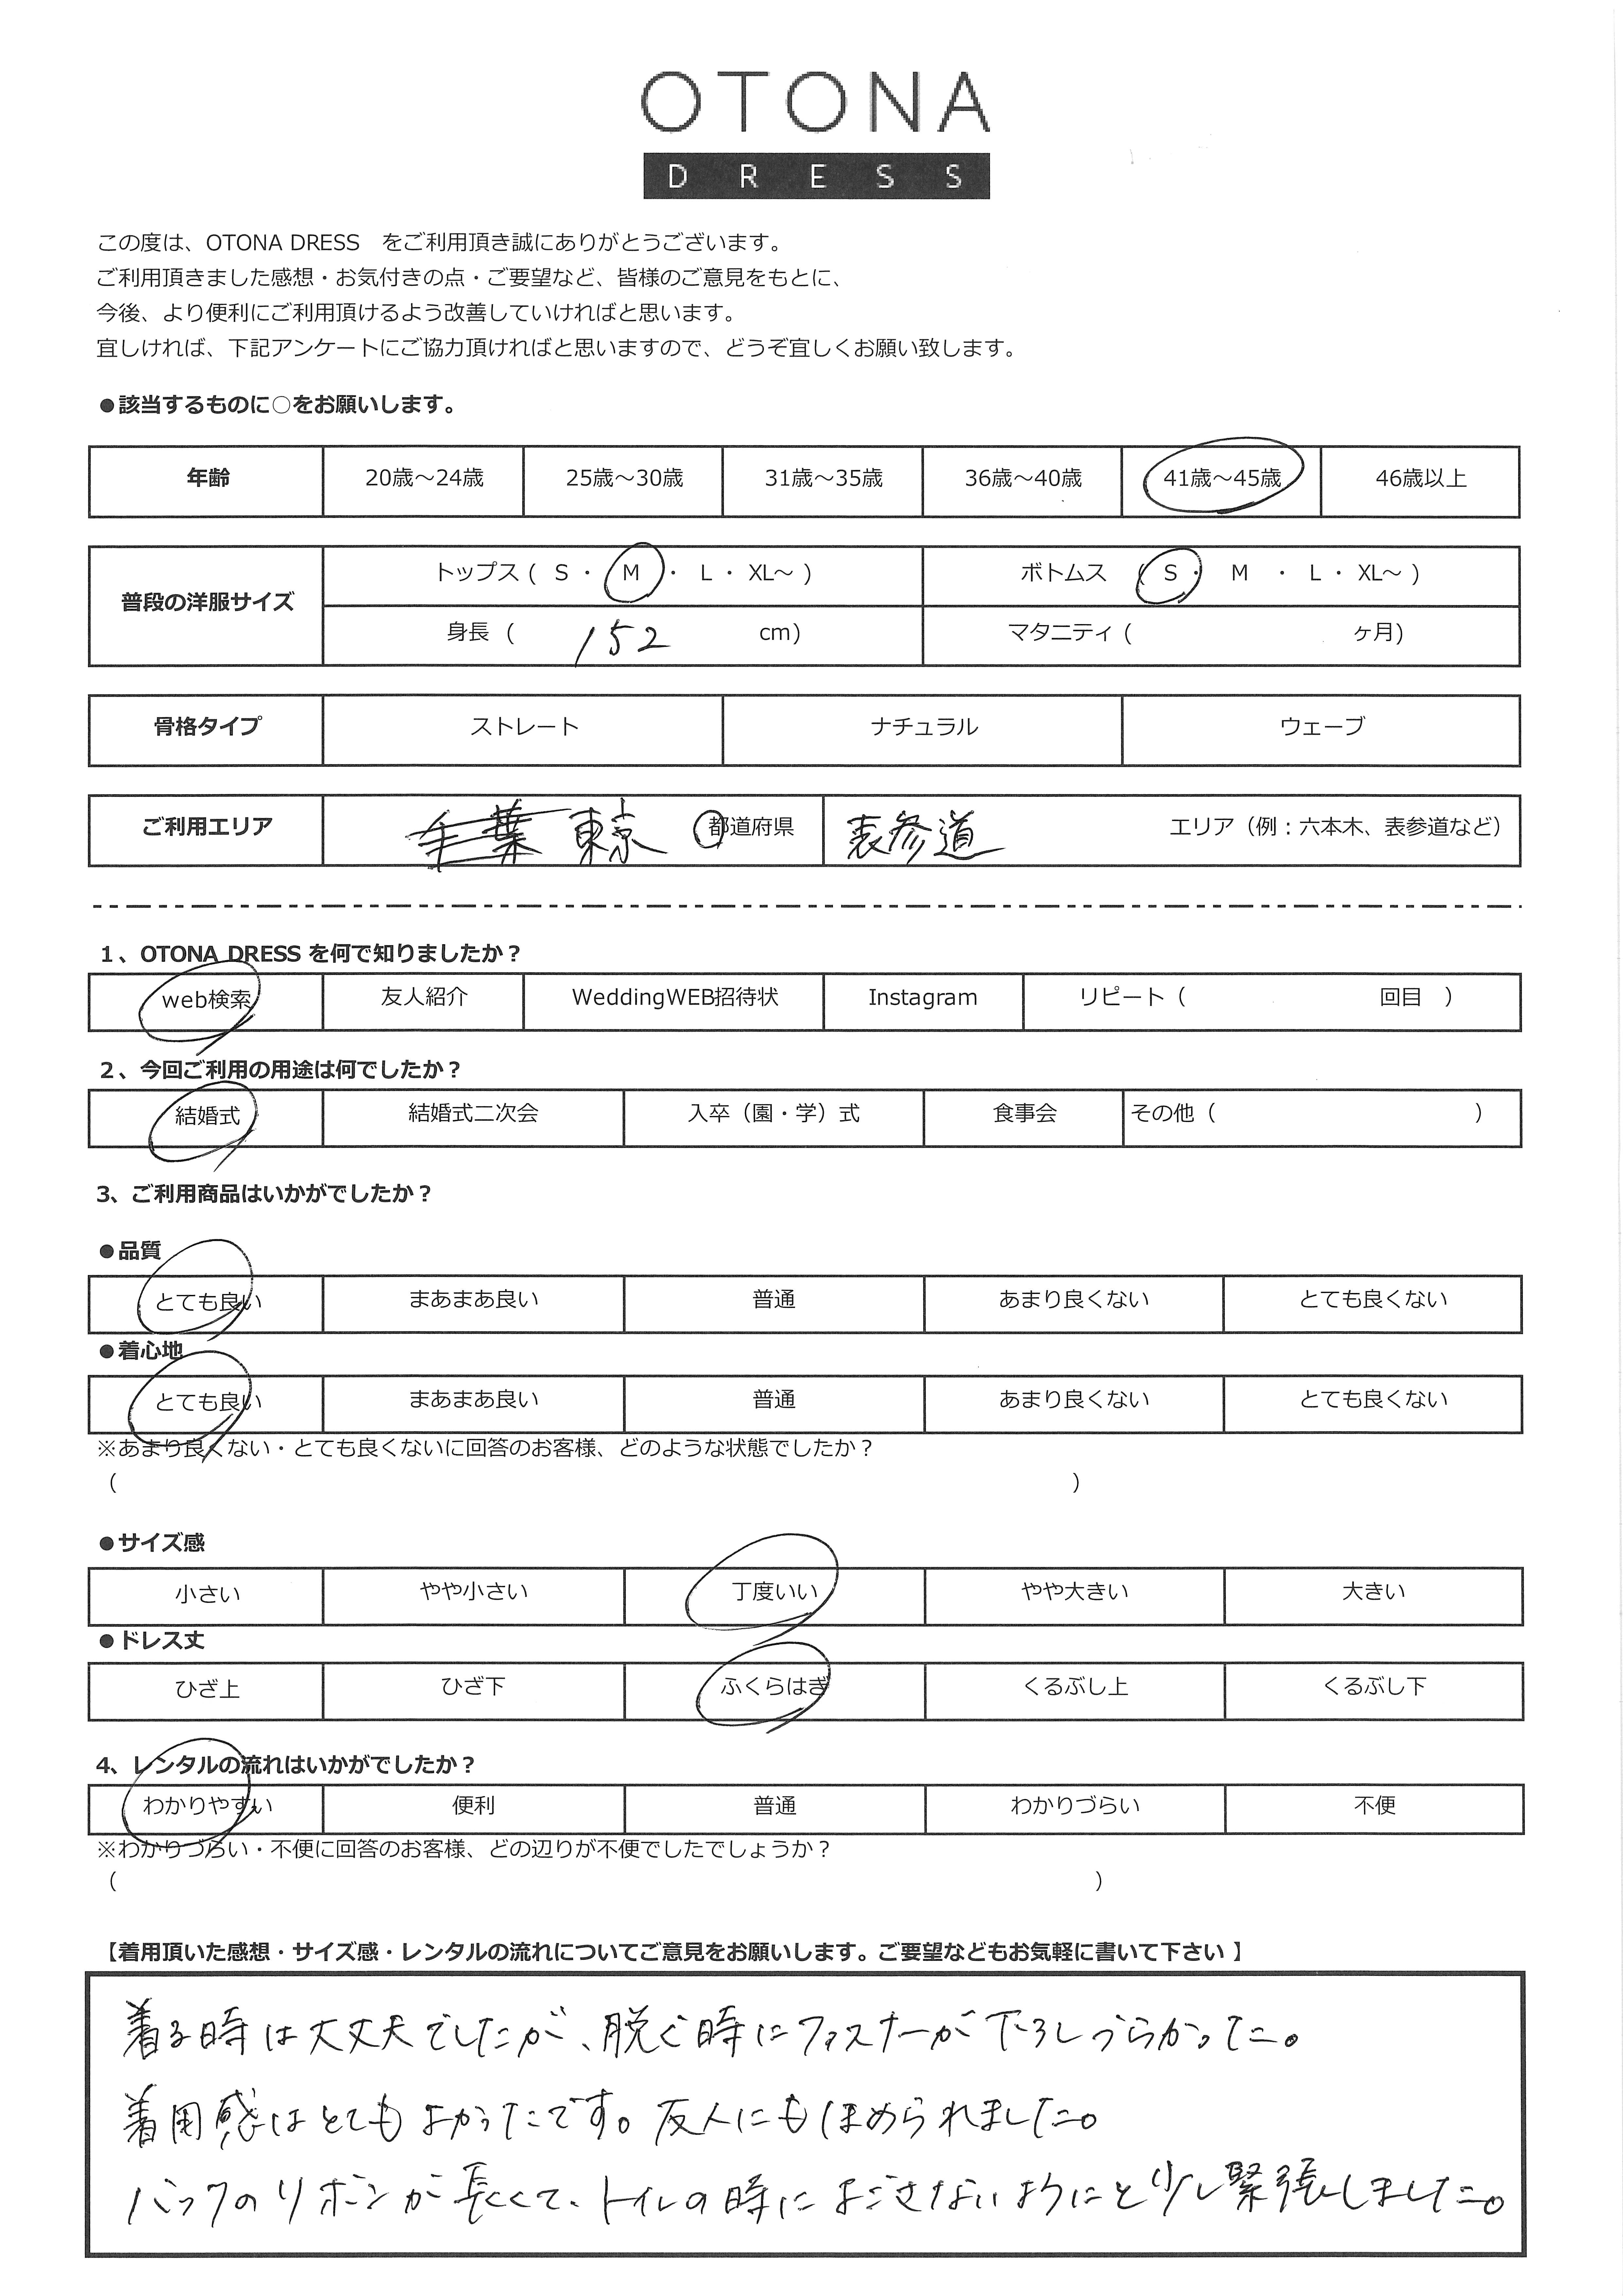 OTONA
DRESS
この度は、OTONA DRESS　をご利用頂き誠にありがとうございます。
ご利用頂きました感想・お気付きの点・ご要望など、皆様のご意見をもとに、
今後、より便利にご利用頂けるよう改善していければと思います。
宜しければ、下記アンケートにご協力頂ければと思いますので、どうぞ宜しくお願い致します。
●該当するものに○をお願いします。
年齢 20歳～24歳 25歳～30歳 31歳～35歳 36歳～40歳 41歳～45歳 46歳以上
普段の洋服サイズ
トップス ( S ・ M ・ L ・ XL～ ) ボトムス ( S ・ M ・ L ・ XL～ )
身長 ( 152 cm) マタニティ ( ヶ月)
骨格タイプ ストレート ナチュラル ウェーブ
ご利用エリア 千葉 東京 都道府県 表参道 エリア（例：六本木、表参道など）
1、OTONA DRESS を何で知りましたか？
web検索 友人紹介 WeddingWEB招待状 Instagram リピート（ 回目 ）
2、今回ご利用の用途は何でしたか？
結婚式 結婚式二次会 入卒（園・学）式 食事会 その他（ ）
3、ご利用商品はいかがでしたか？
●品質
とても良い まあまあ良い 普通 あまり良くない とても良くない
●着心地
とても良い まあまあ良い 普通 あまり良くない とても良くない
※あまり良くない・とても良くないに回答のお客様、どのような状態でしたか？
（ ）
●サイズ感
小さい やや小さい 丁度いい やや大きい 大きい
●ドレス丈
ひざ上 ひざ下 ふくらはぎ くるぶし上 くるぶし下
4、レンタルの流れはいかがでしたか？
わかりやすい 便利 普通 わかりづらい 不便
※わかりづらい・不便に回答のお客様、どの辺りが不便でしたでしょうか？
（ ）
【着用頂いた感想・サイズ感・レンタルの流れについてご意見をお願いします。ご要望などもお気軽に書いて下さい 】
着る時は大丈夫でしたが、脱ぐ時にファスナーが下ろしづらかった。
着用感はとてもよかったです。友人にもほめられました。
バックのリボンが長くて、トイレの時によごさないようにと少し緊張しました。